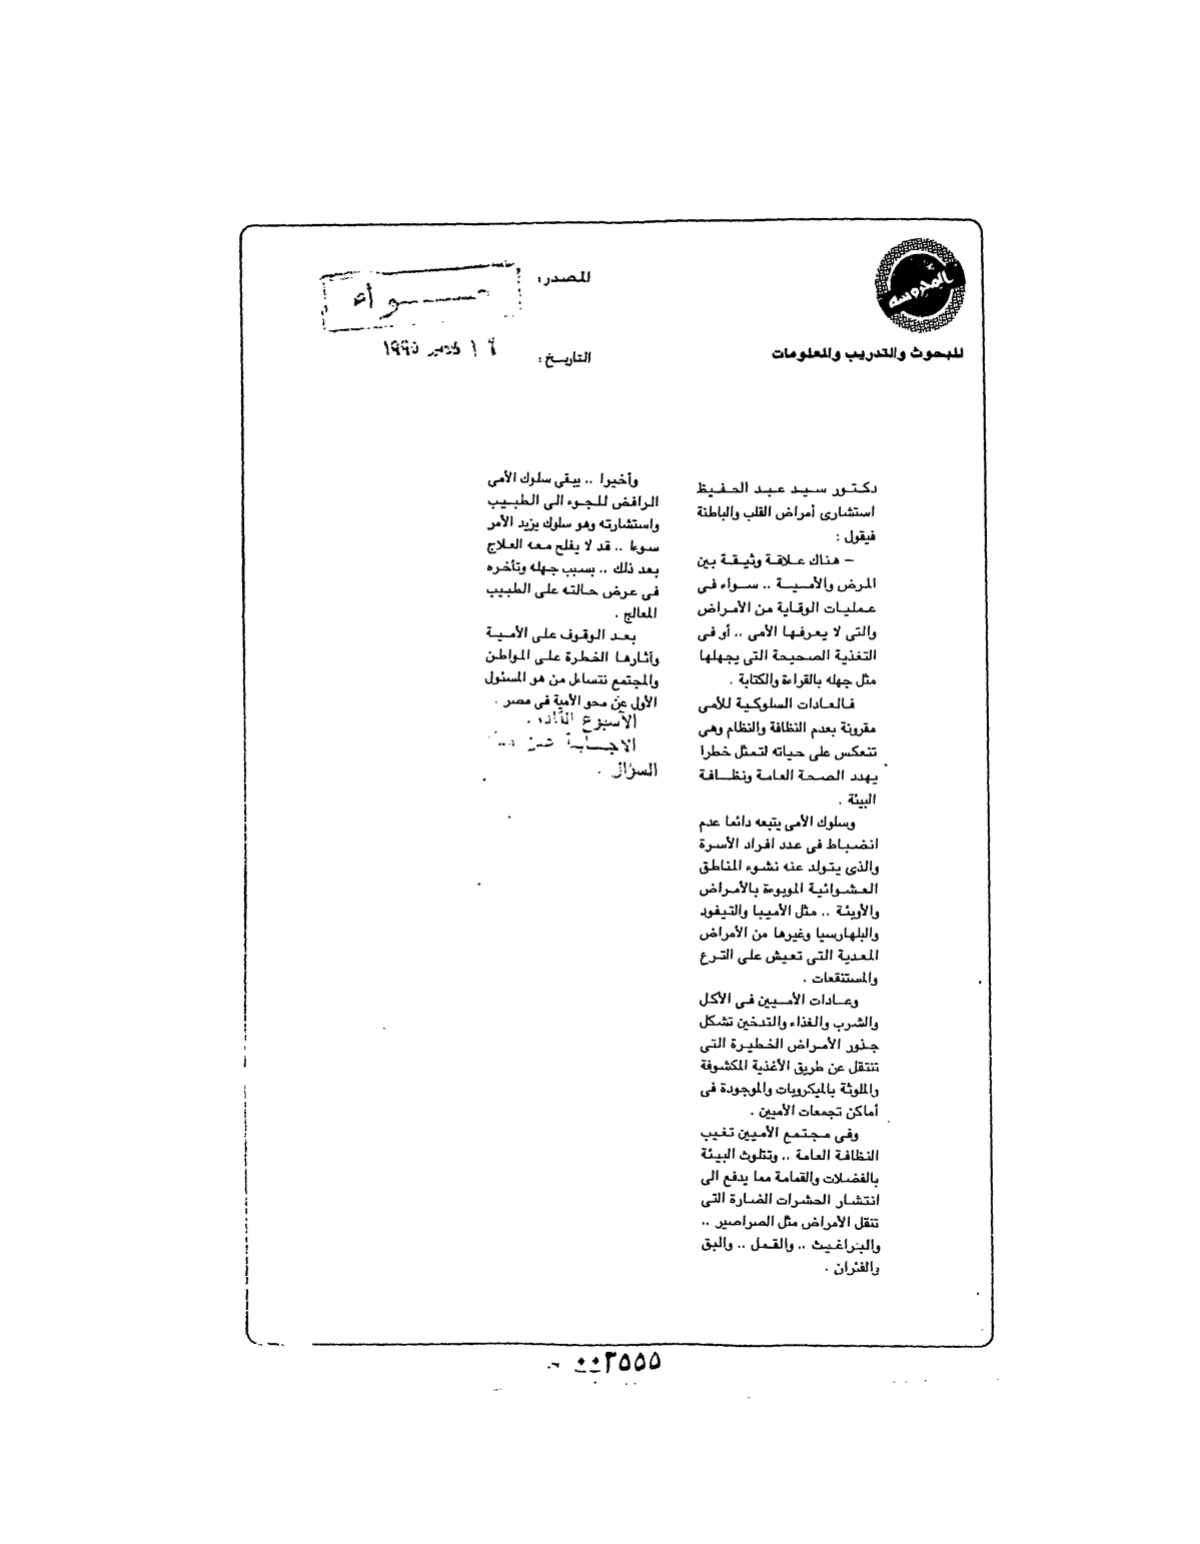 المحروسه
للبحوث والتدريب والمعلومات
المصدر:
حـــــواء
التاريخ:
١٦ ديسمبر ١٩٩٥
دكتور سيد عبد الحفيظ
استشارى أمراض القلب والباطنة
فيقول :
– هناك علاقة وثيقة بين
المرض والأمية .. سواء فى
عمليات الوقاية من الأمراض
والتى لا يعرفها الأمى .. أو فى
التغذية الصحيحة التى يجهلها
مثل جهله بالقراءة والكتابة .
فالعادات السلوكية للأمى
مقرونة بعدم النظافة والنظام وهى
تنعكس على حياته لتمثل خطرا
يهدد الصحة العامة ونظافة
البيئة .
وسلوك الأمى يتبعه دائما عدم
انضباط فى عدد افراد الأسرة
والذى يتولد عنه نشوء المناطق
العشوائية الموبوءة بالأمراض
والأوبئة .. مثل الأميبا والتيفود
والبلهارسيا وغيرها من الأمراض
المعدية التى تعيش على الترع
والمستنقعات .
وعادات الأميين فى الأكل
والشرب والغذاء والتدخين تشكل
جذور الأمراض الخطيرة التى
تنتقل عن طريق الأغذية المكشوفة
والملوثة بالميكروبات والموجودة فى
أماكن تجمعات الأميين .
وفى مجتمع الأميين تغيب
النظافة العامة .. وتتلوث البيئة
بالفضلات والقمامة مما يدفع الى
انتشار الحشرات الضارة التى
تنقل الأمراض مثل الصراصير ..
والبراغيث .. والقمل .. والبق
والفئران .
وأخيرا .. يبقى سلوك الأمى
الرافض للجوء الى الطبيب
واستشارته وهو سلوك يزيد الأمر
سوءا .. قد لا يفلح معه العلاج
بعد ذلك .. بسبب جهله وتأخره
فى عرض حالته على الطبيب
المعالج .
بعد الوقوف على الأمية
وآثارها الخطرة على المواطن
والمجتمع نتساءل من هو المسئول
الأول عن محو الأمية فى مصر .
الأسبوع القادم .
الاجابة عن هذا
السؤال .
٠٠٣٥٥٥